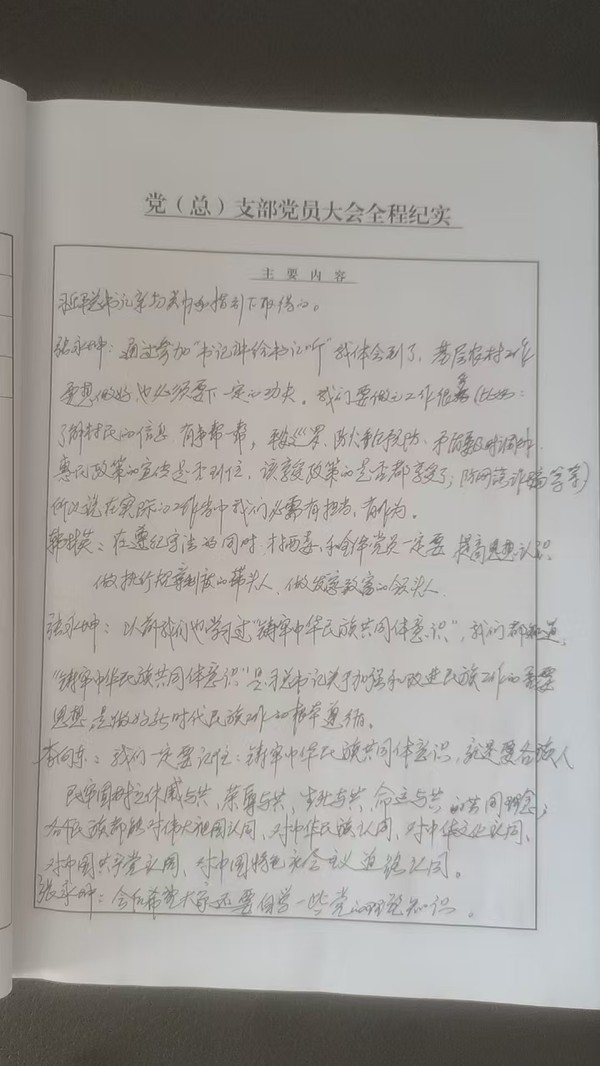 党（总）支部党员大会全程纪实
主要内容
总书记亲切关怀和指引下取得的。
张永坤：通过参加“书记讲给书记听”我体会到了，基层农村工作
要想做好，也必须要下一定的功夫。我们要做的工作很多（比如：
了解村民的信息 有事帮一帮，巡逻、防火重在预防、矛盾要及时调解、
惠民政策的宣传是否到位，该享受政策的是否都享受了；防网络诈骗等等）
所以说在实际的工作当中我们必需有担当，有作为。
：在遵纪守法的同时，村两委和全体党员一定要提高思想认识
做执行规章制度的带头人，做发家致富的领头人。
张永坤：以前我们也学习过“铸牢中华民族共同体意识”，我们都知道，
“铸牢中华民族共同体意识”是习总书记关于加强和改进民族工作的重要
思想，是做好新时代民族工作的根本遵循。
李向东：我们一定要记住：铸牢中华民族共同体意识，就是要各族人
民牢固树立休戚与共、荣辱与共、生死与共、命运与共的共同理念；
各民族都能对伟大祖国认同、对中华民族认同、对中华文化认同、
对中国共产党认同、对中国特色社会主义道路认同。
张永坤：会后希望大家还要自学一些党的理论知识。